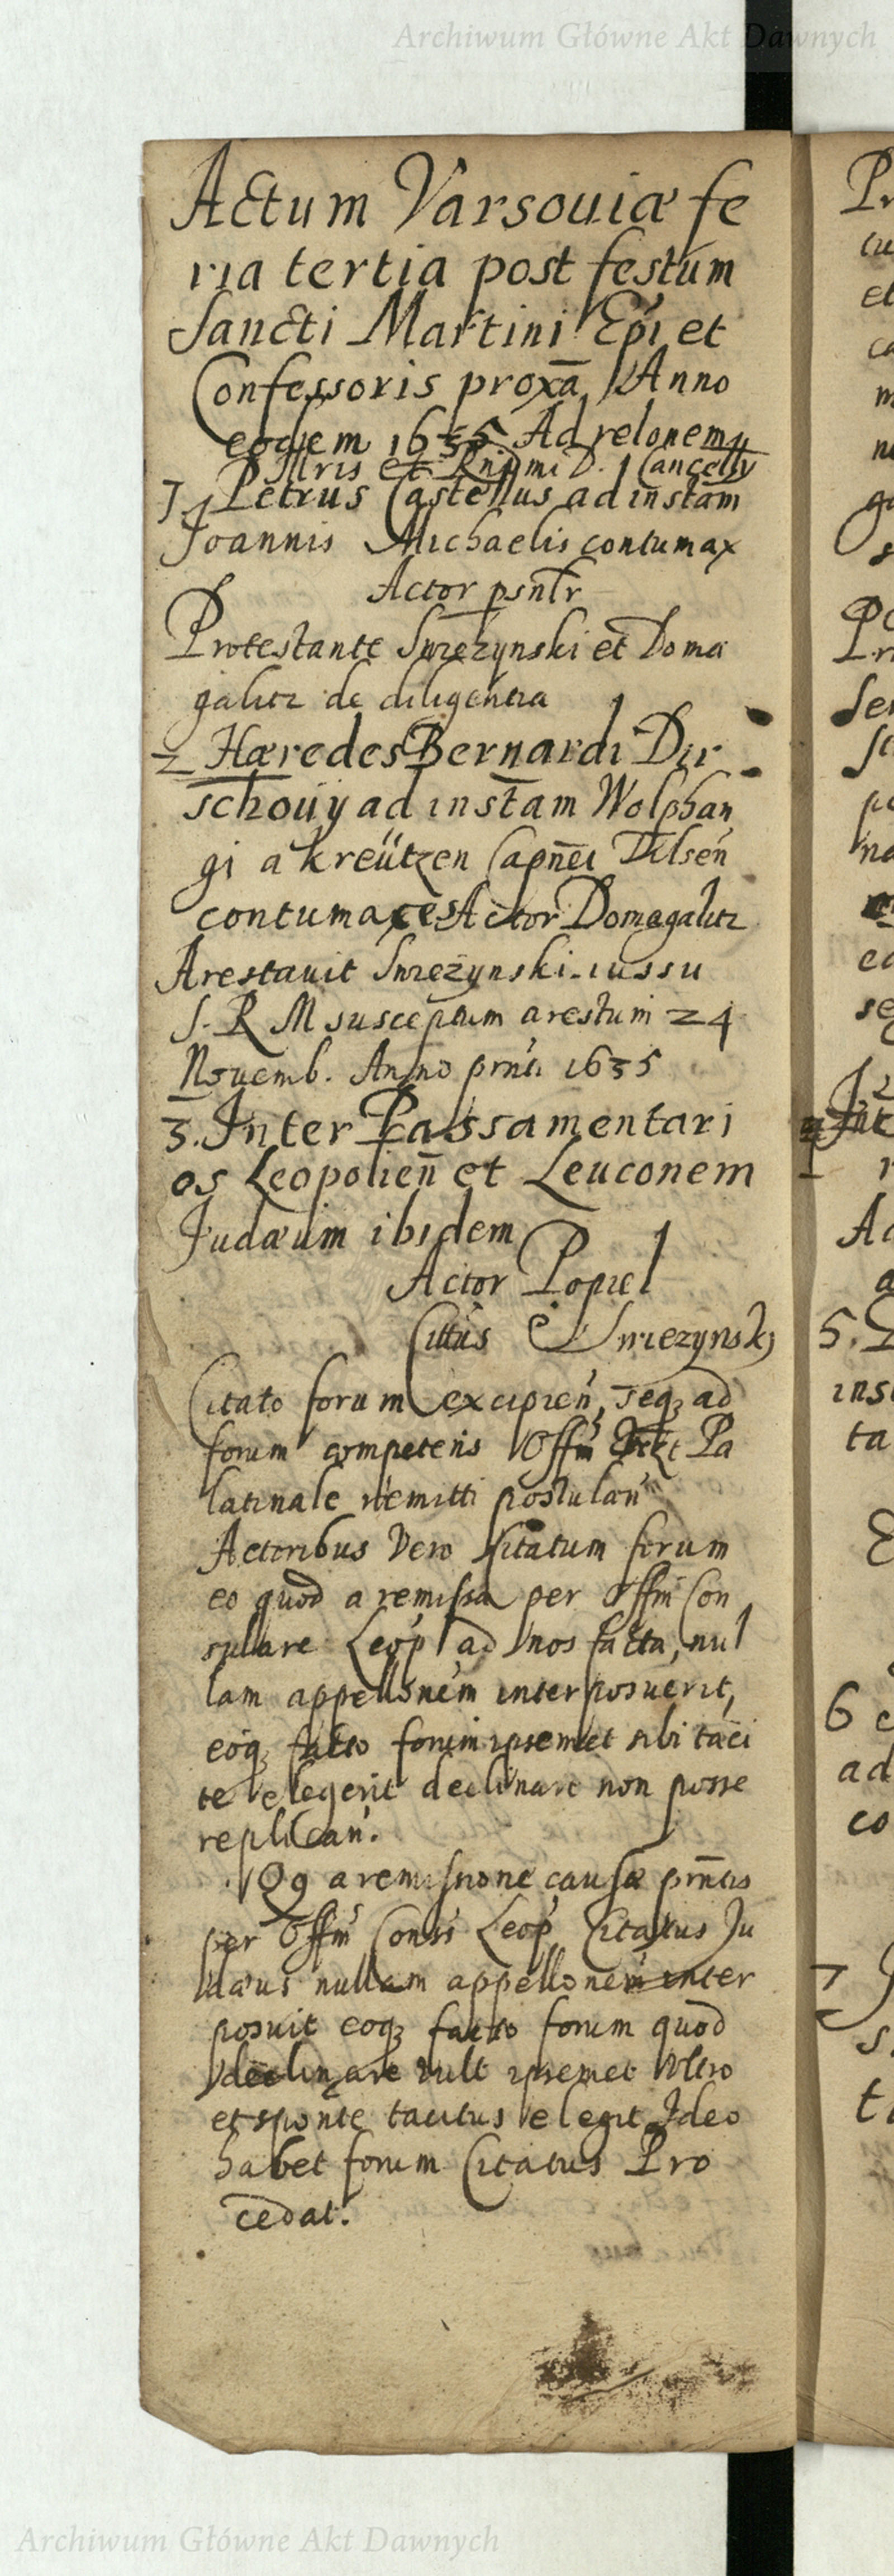 Archiwum Główne Akt Dawnych
Actum Varsouiæ fe
ria tertia post festum
Sancti Martini Epi et
Confessoris proxa Anno
eodem 1635 Ad relonem
Illris et Rndmi D. Cancelly
1 Petrus Castellus ad instam
Joannis Michaelis contumax
Actor psntr
Protestante Swiezynski et Doma
galicz de diligentia
2 Hæredes Bernardi Dir
schouÿ ad instam Wolphan
gi a kreützen Capnei Tilsen
contumaces Actor Domagalicz
Arestauit Swiezynski iussu
S. R M susceptum arestum 24
Nouemb. Anno prnti 1635
3. Inter Passamentari
os Leopolien et Leuconem
Judæum ibidem
Actor Popiel
Cittus Swiezynski
Citato forum excipien, seqz ad
forum competens Offm Pa
latinale remitti postulan
Actoribus Vero Citatum forum
eo quod a remissa per Offm Con
sulare Leop ad nos facta, nul
lam appellonem interposuerit,
eoqz facto forum ipsemet sibi taci
te elegerit declinare non posse
replican.
Qq a remissione causæ prntis
per Offm Conss Leop Citatus Ju
dæus nullam appellonem inter
posuit eoqz facto forum quod
declinare vult ipsemet Vltro
et sponte tacitus elegit Ideo
habet forum Citatus Pro
cedat.
Archiwum Główne Akt Dawnych